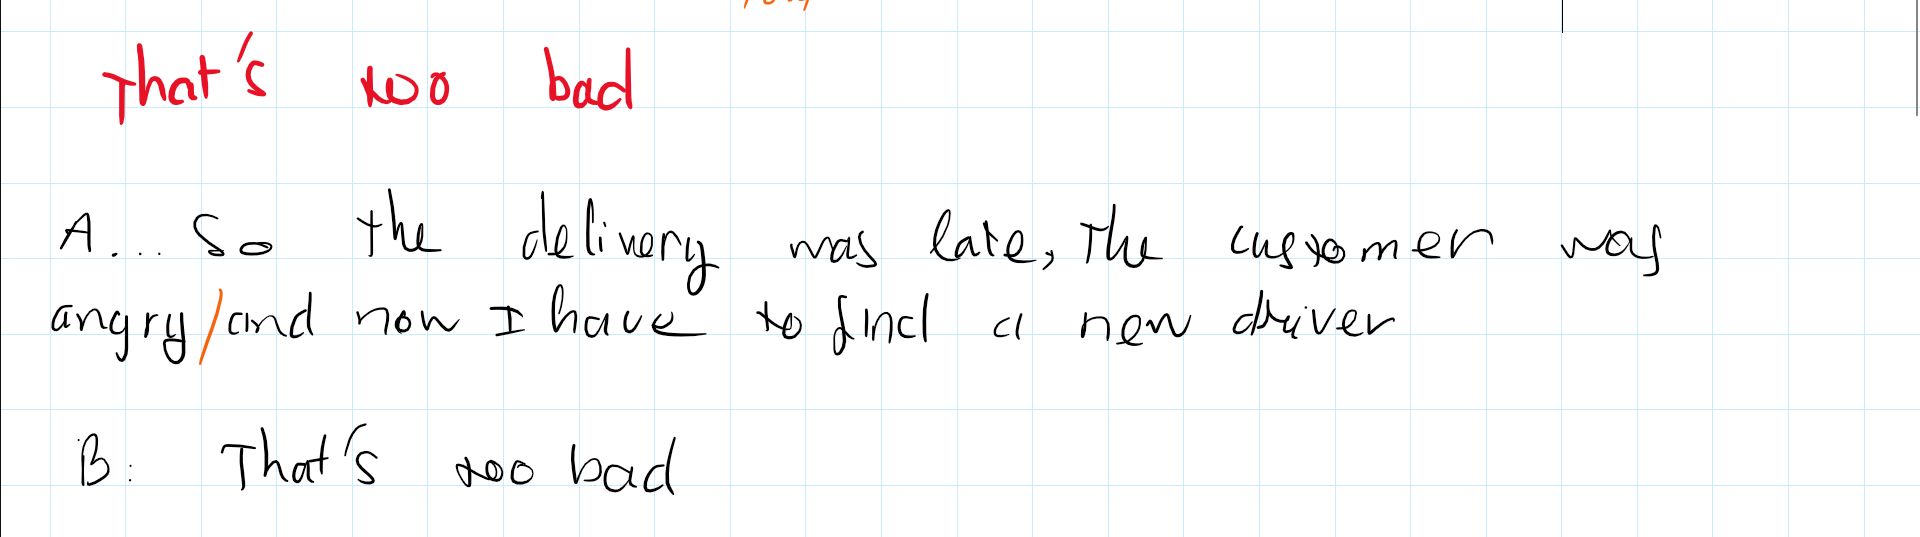 That's too bad
A... So the delivery was late, the customer was
angry/and now I have to find a new driver
B: That's too bad